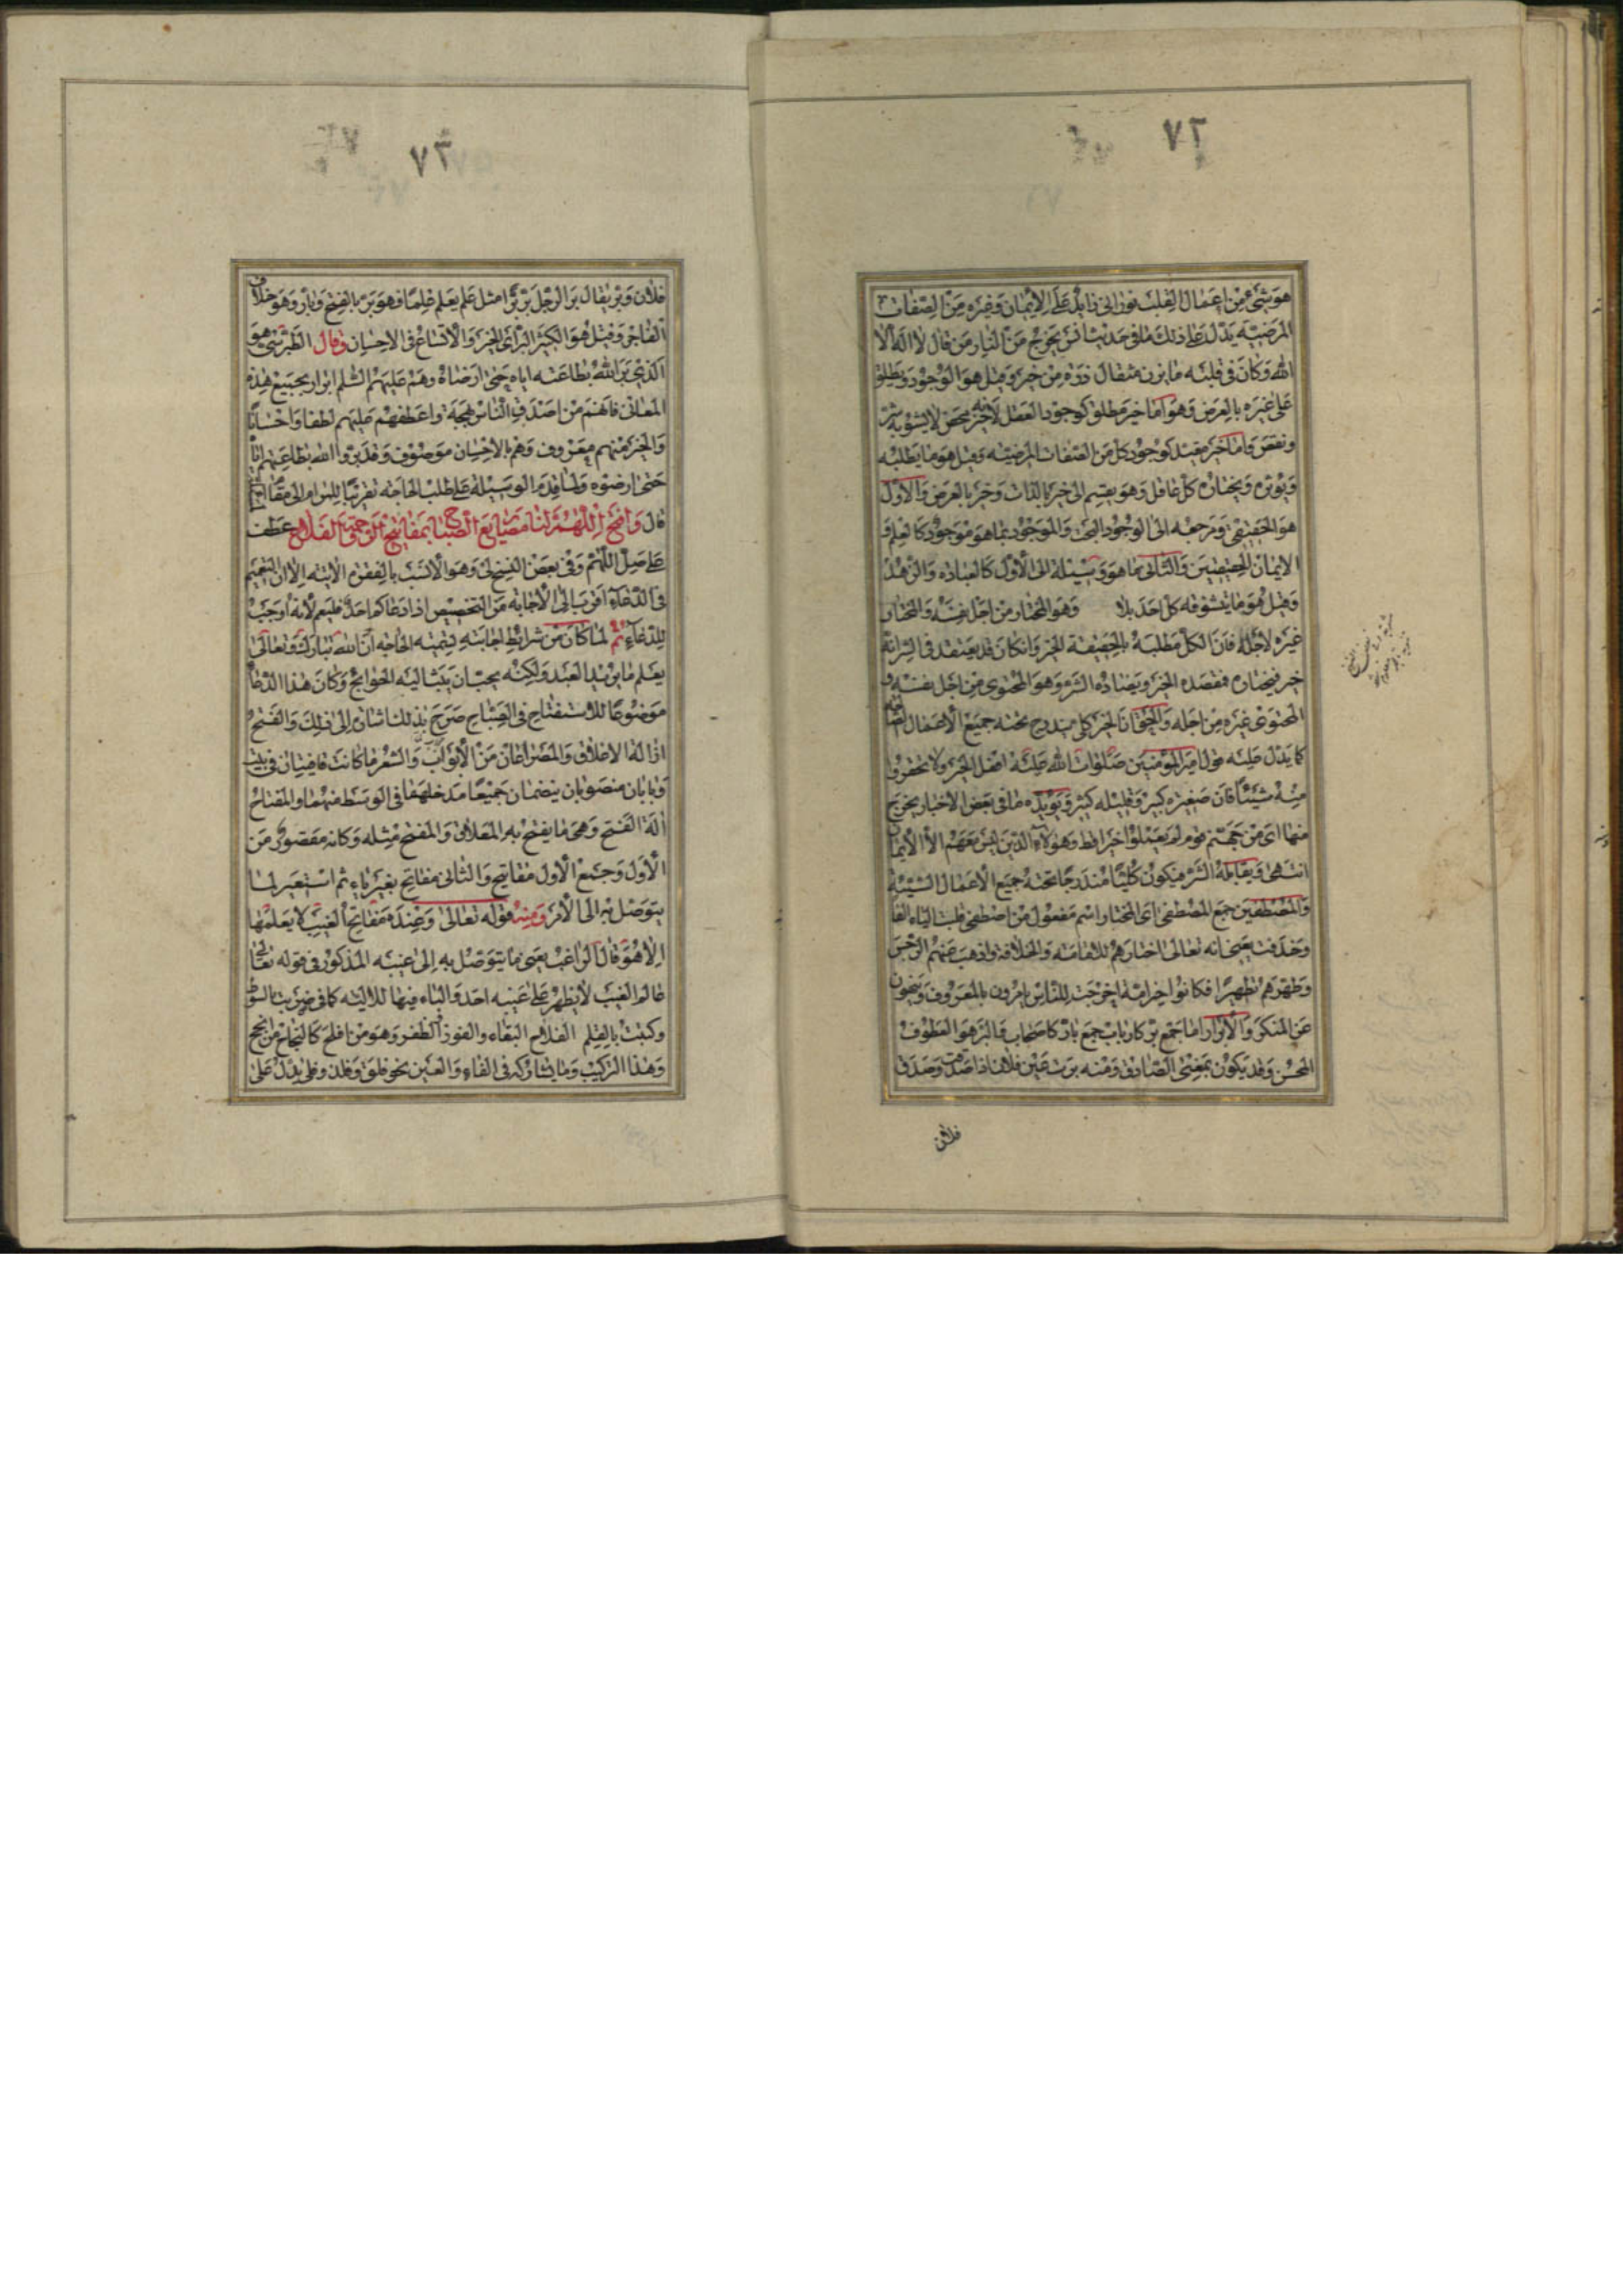 ٧٢
هو شيء من اعمال القلب نوراني زايد على الايمان وغيره من الصفات
المرضيه يدل على ذلك ما في حديث انس يخرج من النار من قال لا اله الا
الله وكان في قلبه ما يزن ذره من خير وقيل هو الوجود ويطلق
على غيره بالعرض وهو اما خير مطلق كوجود العقل لانه خير محض لا يشوبه شر
ونقص واما خير مقيد كوجود كل من الصفات المرضيه وقيل هو ما يطلبه
ويوثره ويختاره كل عاقل وهو ينقسم الى خير بالذات وخير بالعرض والاول
هو الحقيقي ومرجعه الى الوجود البحت والموجود بما هو موجود كالعلم و
الايمان الحقيقيين والثاني ما هو وسيلة الى الاول كالعباده والزهد
وقيل هو ما يتشوقه كل احد بلا وهو المختار من اجل نفسه والمختار
غيره لاجله فان الكل مطلبه بالحقيقة الخير وان كان قد يعتقد في الشر انه
خير فيختاره فقصده الخير ويضاده الشر وهو المجتوى من اجل نفسه و
المجتوى غيره من اجله والحق ان الخير كلي يندرج تحته جميع الاعمال
كما يدل عليه قول امير المومنين صلوات الله عليه افعل الخير ولا تحقروا
منه شيئا فان صغيره كبير وقليله كثير ويويده ما في بعض الاخبار يخرج
منها اي من جهنم قوم لم يعملوا خيرا قط وهولاء الذين ليس معهم الا الايمان
انتهى ويقابله الشر فيكون كليا مندرجا تحته جميع الاعمال السيئه
والمصطفين جمع المصطفى اي المختار اسم مفعول من اصطفى قلبت الياء الفا
وحذفت يعني انه تعالى اختارهم للامامته والخلافة واذهب عنهم الرجس
وطهرهم تطهيرا فكانوا خير امة اخرجت للناس يامرون بالمعروف وينهون
عن المنكر والابرار اما جمع بر كارباب جمع بار كاصحاب والبر هو العطوف
المحسن وقد يكون بمعنى الصادق ومنه برت يمين فلان اذا صدقت وصدق
فلان
٧٣
فلان وبر يقال بر الرجل يبر برا مثل علم يعلم علما فهو بر بالفتح وبار وهو خلاف
الفاجر وقيل هو الكثير البر اي الخير والاتساع في الاحسان وقال الطبرسي هو
الذي بر الله بطاعته اياه حتى ارضاه وهم عليهم السلم ابرار بجميع هذه
المعاني فانهم من اصدق الناس لهجة واعطفهم عليهم لطفا واحسانا
والخير منهم معروف وهم بالاحسان موصوف وقد بروا الله بطاعتهم اياه
حتى ارضوه ولما قدم الوسيلة على طلب الحاجه تقريبا للمرام الى
قال وافتح اللهم لنا مصاريع الصباح بمفاتيح الرحمة والفلاح عطف
على صل اللهم وفي بعض النسخ لي وهو الانسب بالفقره الاتيه الا ان التعميم
في الدعاء اقرب الى الاجابه من التخصيص اذا دعا احد فليعم لانه اوجب
للدعاء ثم لما كان من شرائط اجابته تسميته الحاجه ان الله تبارك وتعالى
يعلم ما يريد العبد ولكنه يحب ان يبث اليه الحوايج وكان هذا الدعاء
موضوعا للاستفتاح في الصباح صرح بذلك اشارة الى ذلك والفتح
ازالة الاغلاق والمصراعان من الابواب والشعر ما كانت قافيتان في بيت
وبابان منصوبان ينضمان جميعا مدخلهما في الوسط منهما والمفتاح
الة الفتح وهي ما يفتح به المغلاق والمفتح مثله وكانه مقصور من
الاول وجمع الاول مفاتيح والثاني مفاتح بغير ياء ثم استعير لما
يتوصل به الى الامر ومنه قوله تعالى وعنده مفاتح الغيب لا يعلمها
الا هو قال الراغب يعني ما يتوصل به الى غيبه المذكور في قوله تعالى
عالم الغيب لا يظهر على غيبه احد والباء فيها للاليه كما في ضربت بالسوط
وكتبت بالقلم الفلاح البقاء والفوز والظفر وهو من افلح كالنجاح من انجح
وهذا التركيب وما يشاركه في الفاء والعين نحو فلق وفلذ وفلى يدل على